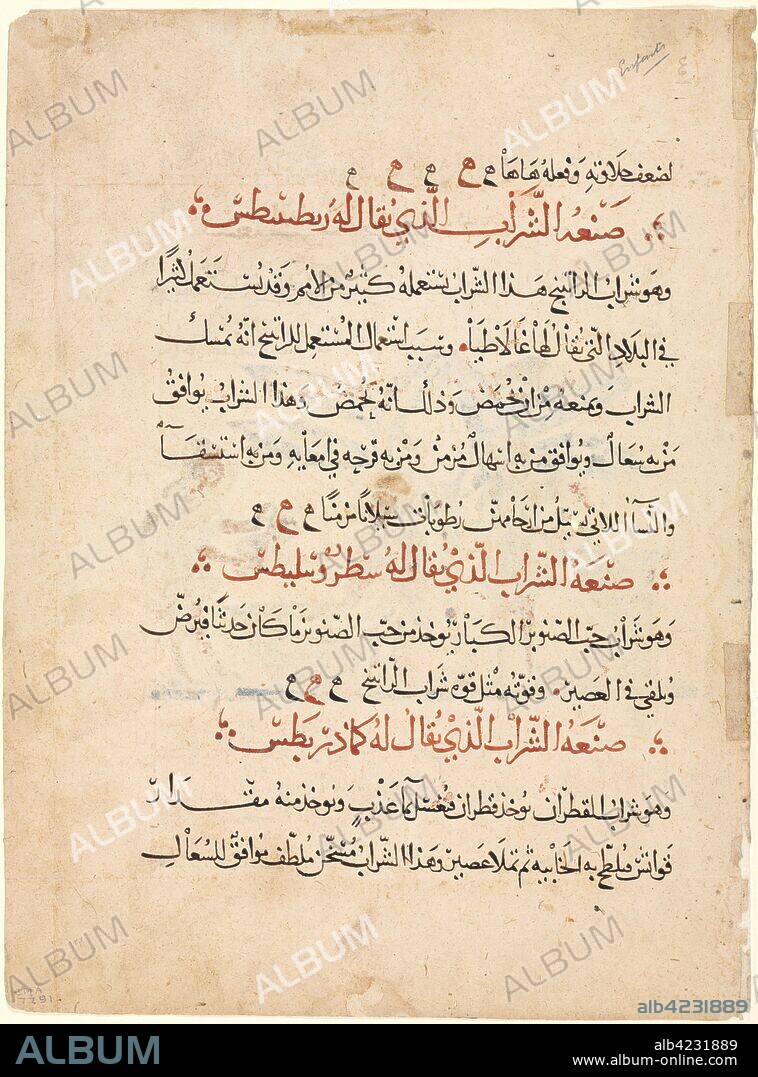 Enfants
لضعف حلاوته وفعله هاهنا ه ه ه ه ه
صنعة الشراب الذي يقال له ريطينيطس
وهو شراب الراتينج هذا الشراب يستعمله كثير من الامم وقد يستعمل كثيرا
في البلاد التي يقال لها غالاطيا وسبب استعمال المستعمل للراتينج انه يمسك
الشراب ويمنعه من ان يحمض وذلك انه يحمض وهذا الشراب يوافق
من به سعال ويوافق من به اسهال مزمن ومن به قرحه في معايه ومن به استسقاء
والنساء اللاتي يسيل من ارحامهن رطوبات سيلانا مزمنا ه ه ه
صنعة الشراب الذي يقال له سطروبيليطس
وهو شراب حب الصنوبر الكبار يوخذ من حب الصنوبر ما كان حديثا فيرض
ويلقي في العصير وقوته مثل قوة شراب الراتينج ه ه ه
صنعة الشراب الذي يقال له
وهو شراب القطران يوخذ قطران فيغسل بماء عذب ويوخذ منه مقدار
قواثس فيلطخ به الخابية ثم تملا عصير وهذا الشراب مسخن ملطف موافق للسعال
CMA
7291
ALBUM
alb4231889
ALBUM
alb4231889
www.album-online.com